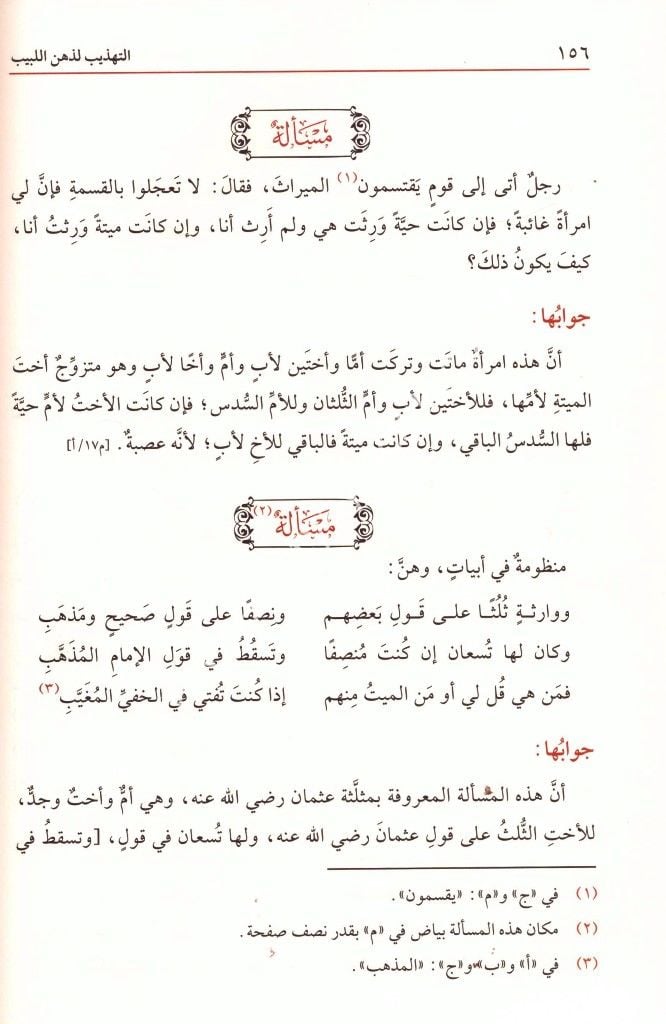 ١٥٦ التهذيب لذهن اللبيب
مَسْأَلة
رجلٌ أتى إلى قومٍ يَقتسمون(١) الميراثَ، فقالَ: لا تَعجَلوا بالقسمةِ فإنَّ لي
امرأةً غائبةً؛ فإن كانَت حيَّةً وَرِثَت هي ولم أَرِث أنا، وإن كانَت ميتةً وَرِثتُ أنا،
كيفَ يكونُ ذلكَ؟
جوابُها:
أنَّ هذه امرأةٌ ماتَت وتركَت أمًّا وأختَين لأبٍ وأمٍّ وأخًا لأبٍ وهو متزوِّجٌ أختَ
الميتةِ لأمِّها، فللأختَين لأبٍ وأمٍّ الثُّلثان وللأمِّ السُّدس؛ فإن كانَت الأختُ لأمٍّ حيَّةً
فلها السُّدسُ الباقي، وإن كانت ميتةً فالباقي للأخِ لأبٍ؛ لأنَّه عصبةٌ. [م١٧/أ]
مَسْأَلة(٢)
منظومةٌ في أبياتٍ، وهنَّ:
ووارثـةٍ ثُلُثًـا علـى قَـولِ بَعضِهـم ونِصفًا على قَولٍ صَحيحٍ ومَذهَبِ
وكان لها تُسعان إن كُنتَ مُنصِفًا وتَسقُطُ في قوَلِ الإمامِ المُذَهَّبِ
فمَن هي قُل لي أو مَن الميتُ مِنهم إذا كُنتَ تُفتي في الخفيِّ المُغَيَّبِ(٣)
جوابُها:
أنَّ هذه المسألة المعروفة بمثلَّثة عثمان رضي الله عنه، وهي أمٌّ وأختٌ وجدٌّ،
للأختِ الثُّلثُ على قولِ عثمانَ رضي الله عنه، ولها تُسعان في قولٍ، [وتسقطُ في
(١) في «ج» و«م»: «يقسمون».
(٢) مكان هذه المسألة بياض في «م» بقدر نصف صفحة.
(٣) في «أ» و«ب» و«ج»: «المذهب».